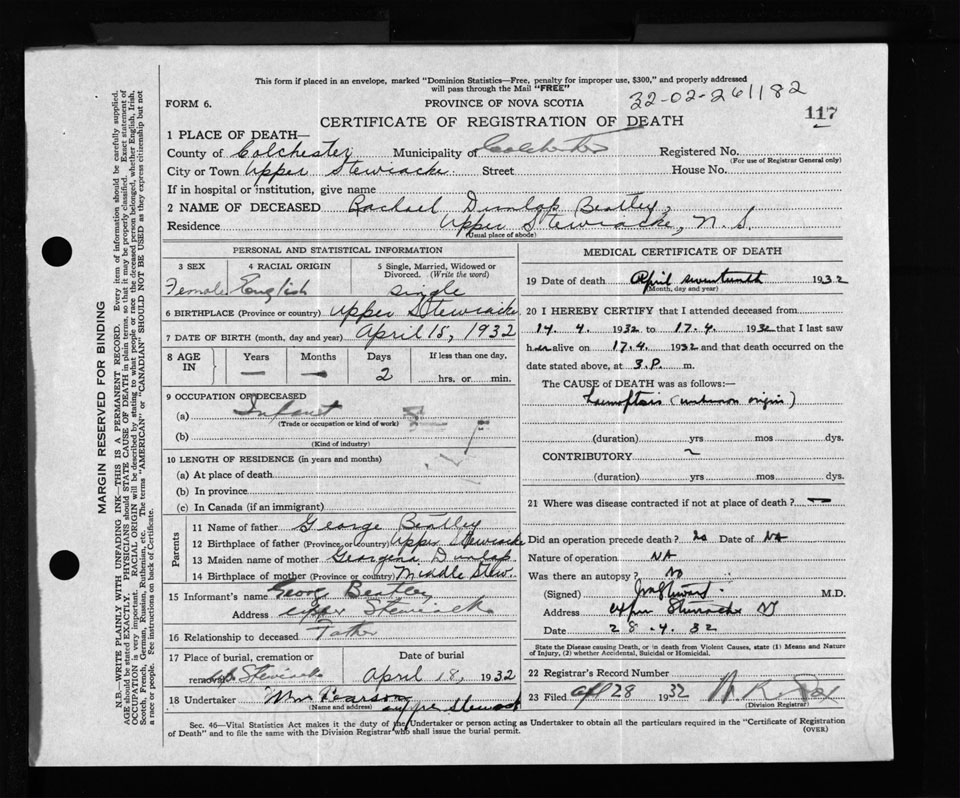 This form if placed in an envelope, marked "Dominion Statistics—Free, penalty for improper use, $300," and properly addressed
will pass through the Mail "FREE"
FORM 6.
PROVINCE OF NOVA SCOTIA
32-02-261182
CERTIFICATE OF REGISTRATION OF DEATH
117
1 PLACE OF DEATH—
County of Colchester Municipality of Colchester Registered No.
(For use of Registrar General only)
City or Town Upper Stewiacke Street House No.
If in hospital or institution, give name
2 NAME OF DECEASED Rachael Dunlap Beatley,
Residence Upper Stewiacke, N. S.
(Usual place of abode)
PERSONAL AND STATISTICAL INFORMATION
3 SEX 4 RACIAL ORIGIN 5 Single, Married, Widowed or
Divorced. (Write the word)
Female English single
6 BIRTHPLACE (Province or country) Upper Stewiacke
7 DATE OF BIRTH (month, day and year) April 15, 1932
8 AGE IN Years Months Days If less than one day,
— — 2 hrs. or min.
9 OCCUPATION OF DECEASED
(a) Infant
(Trade or occupation or kind of work)
(b)
(Kind of industry)
10 LENGTH OF RESIDENCE (in years and months)
(a) At place of death
(b) In province
(c) In Canada (if an immigrant)
Parents
11 Name of father George Beatley
12 Birthplace of father (Province or country) Upper Stewiacke
13 Maiden name of mother Georgina Dunlap
14 Birthplace of mother (Province or country) Middle Stew.
15 Informant's name George Beatley
Address Upper Stewiacke
16 Relationship to deceased Father
17 Place of burial, cremation or Date of burial
removal Stewiacke April 18, 1932
18 Undertaker Wm Pearson
(Name and address)
MEDICAL CERTIFICATE OF DEATH
19 Date of death April seventeenth 1932
(Month, day and year)
20 I HEREBY CERTIFY that I attended deceased from
14. 4. 1932 to 17.4. 1932 that I last saw
her alive on 17.4. 1932 and that death occurred on the
date stated above, at 3.P. m.
The CAUSE of DEATH was as follows:—
Haemoptsis (unknown origin)
(duration) yrs mos dys.
CONTRIBUTORY ~
(duration) yrs mos dys.
21 Where was disease contracted if not at place of death? —
Did an operation precede death? no Date of NA
Nature of operation NA
Was there an autopsy? No
(Signed) M.D.
Address Upper Stewiacke
Date 28.4.32
State the Disease causing Death, or in death from Violent Causes, state (1) Means and Nature
of Injury, (2) whether Accidental, Suicidal or Homicidal.
22 Registrar's Record Number
23 Filed Apl 28 1932
(Division Registrar)
Sec. 46—Vital Statistics Act makes it the duty of the Undertaker or person acting as Undertaker to obtain all the particulars required in the "Certificate of Registration
of Death" and to file the same with the Division Registrar who shall issue the burial permit. (OVER)
MARGIN RESERVED FOR BINDING
N.B.—WRITE PLAINLY WITH UNFADING INK—THIS IS A PERMANENT RECORD. Every item of information should be carefully supplied.
AGE should be stated EXACTLY. PHYSICIANS should STATE CAUSE OF DEATH in plain terms, so that it may be properly classified. Exact statement of
OCCUPATION is very important. RACIAL ORIGIN will be described by stating to what people or race the deceased person belonged, whether English, Irish,
Scotch, French, German, Russian, Ruthenian, etc. The terms "AMERICAN" or "CANADIAN" SHOULD NOT BE USED as they express citizenship but not
a race or people. See instructions on back of Certificate.